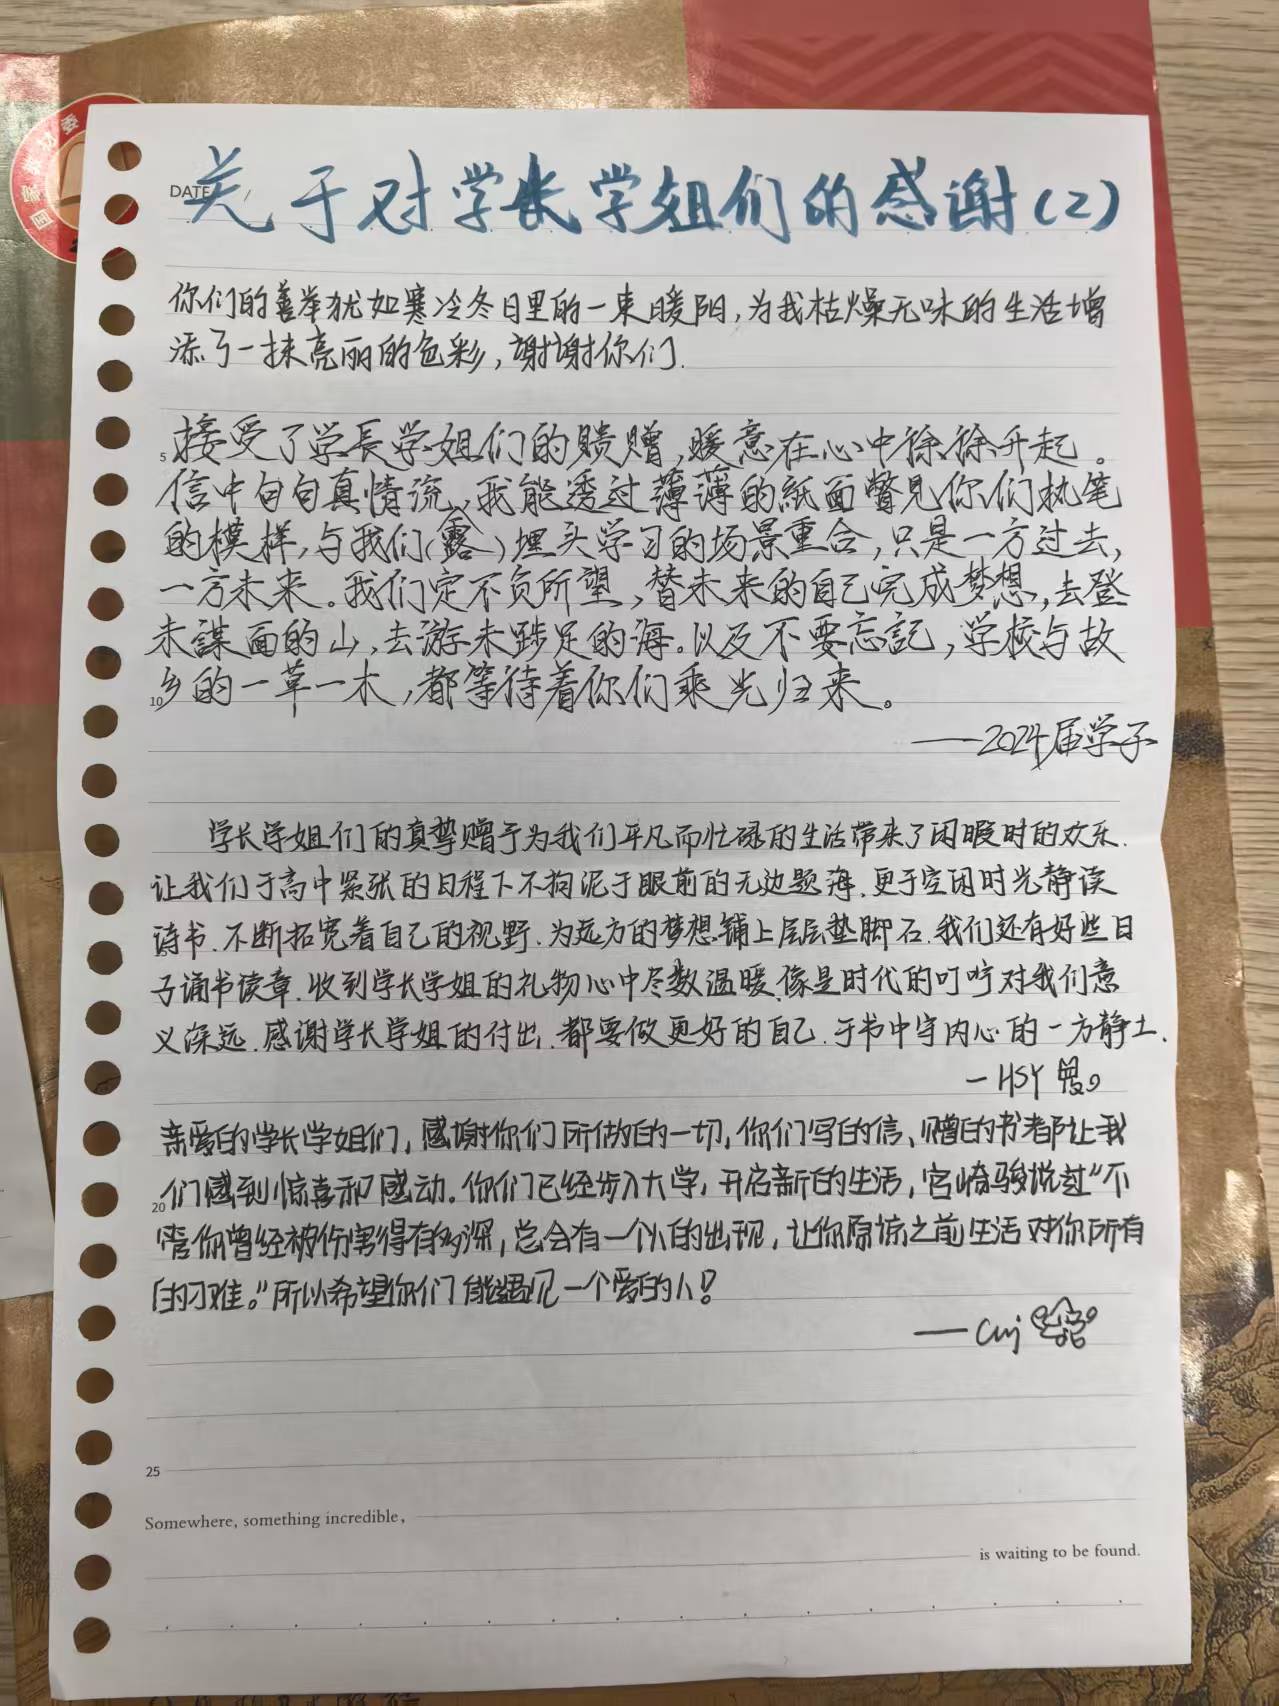 国家教材委
DATE
关于对学长学姐们的感谢(2)
你们的善举犹如寒冷冬日里的一束暖阳,为我枯燥无味的生活增
添了一抹亮丽的色彩,谢谢你们.
5 接受了学長学姐们的赐赠,暖意在心中徐徐升起。
信中句句真情流露,我能透过薄薄的紙面瞥見你们执笔
的模样,与我们(  )埋头学习的场景重合,只是一方过去,
一方未来。我们定不负所望,替未来的自己完成梦想,去登
未謀面的山,去游未踄足的海。以及不要忘記,学校与故
10 乡的一草一木,都等待着你们乘光归来。
——2024届学子
学长学姐们的真挚赠予为我们平凡而忙碌的生活带来了闲暇时的欢乐.
让我们于高中紧张的日程下不拘泥于眼前的无边题海.更于空闲时光静读
诗书.不断拓宽着自己的视野.为远方的梦想铺上层层垫脚石.我们还有好些日
子诵书读章.收到学长学姐的礼物心中尽数温暖.像是时代的叮咛对我们意
义深远.感谢学长学姐的付出.都要做更好的自己.于书中守内心的一方静土.
—HSY
亲爱的学长学姐们,感谢你们所做的一切,你们写的信、赠的书都让我
20 们感到惊喜和感动。你们已经步入大学,开启新的生活,宫崎骏说过"不
管你曾经被伤害得有多深,总会有一个人的出现,让你原谅之前生活对你所有
的刁难。"所以希望你们能遇见一个爱的人!
25
Somewhere, something incredible,
is waiting to be found.